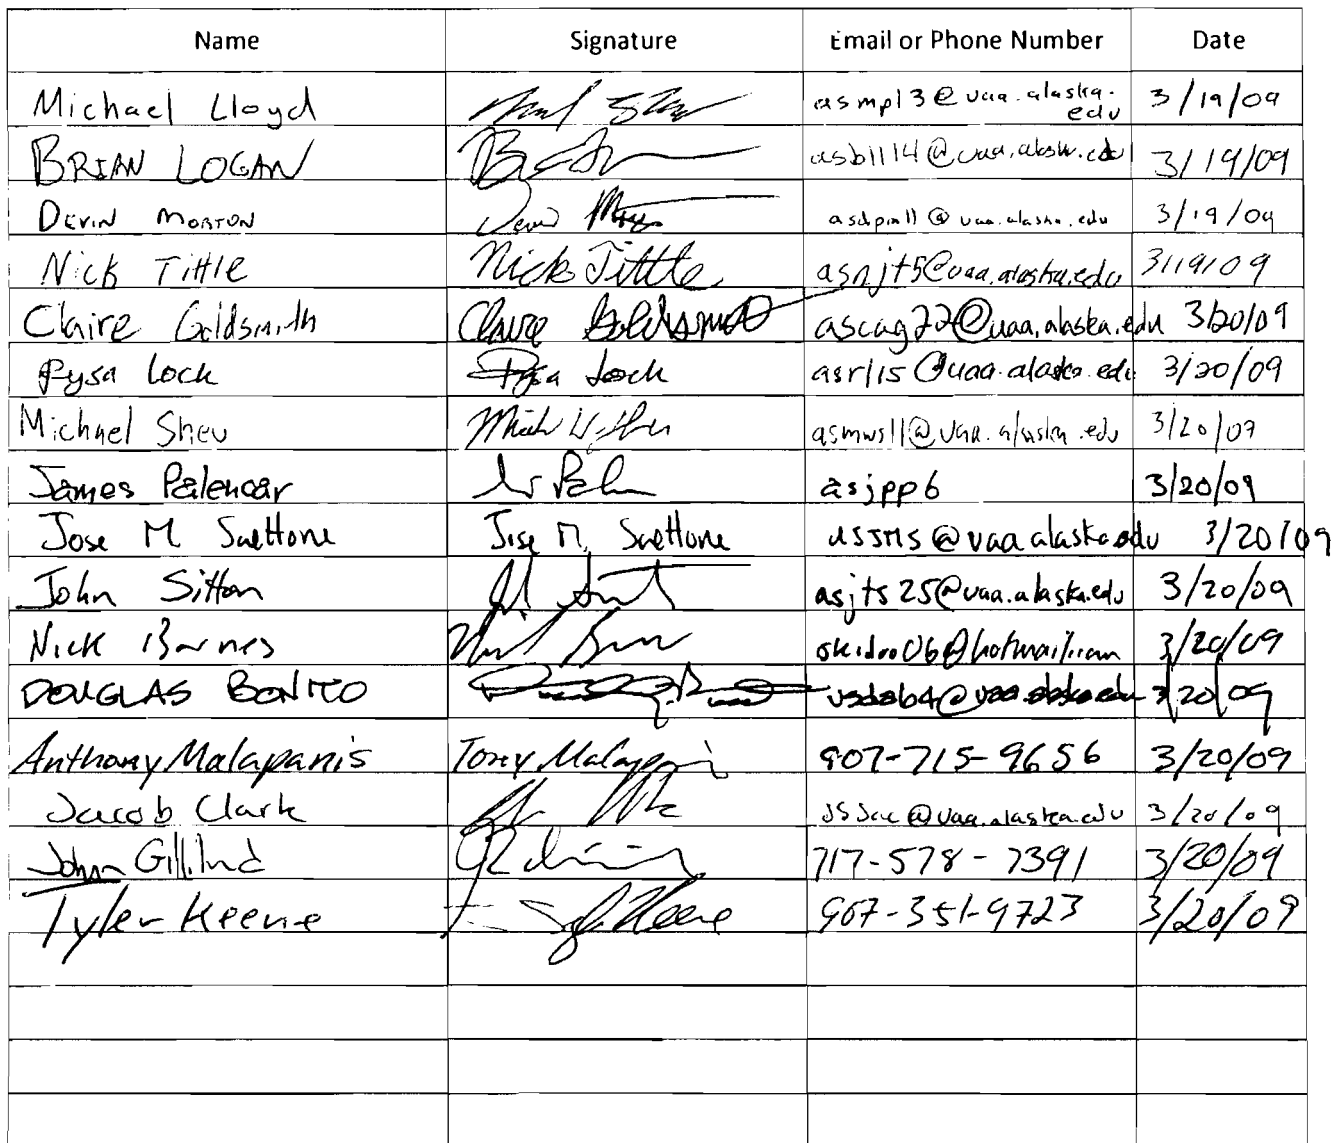 Name Signature Email or Phone Number Date
Michael Lloyd asmpl3@uaa.alaska.edu 3/19/09
BRIAN LOGAN asbll14@uaa.alaska.edu 3/19/09
DEVIN MORTON @uaa.alaska.edu 3/19/09
Nick Tittle Nick Tittle asnjt5@uaa.alaska.edu 3/19/09
Claire Goldsmith Claire Goldsmith ascag22@uaa.alaska.edu 3/20/09
Rysa Lock Rysa Lock asrl15@uaa.alaska.edu 3/20/09
Michael Shev asmws11@uaa.alaska.edu 3/20/09
James Palencar asjpp6 3/20/09
Jose M Suettone Jose M. Suettone @uaa.alaska.edu 3/20/09
John Sitton asjts25@uaa.alaska.edu 3/20/09
Nick Barnes skidoo06@hotmail.com 3/20/09
DOUGLAS BONITO @uaa.alaska.edu 3/20/09
Anthony Malapanis Tony 907-715-9656 3/20/09
Jacob Clark @uaa.alaska.edu 3/20/09
John Gilliland 717-578-7391 3/20/09
Tyler Keene Keene 907-351-9723 3/20/09